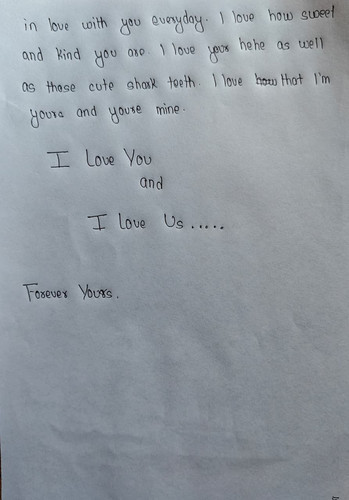 in love with you everyday. I love how sweet
and kind you are. I love your hehe as well
as those cute shark teeth. I love how that I'm
yours and youre mine.
I Love You
and
I love Us.....
Forever Yours.